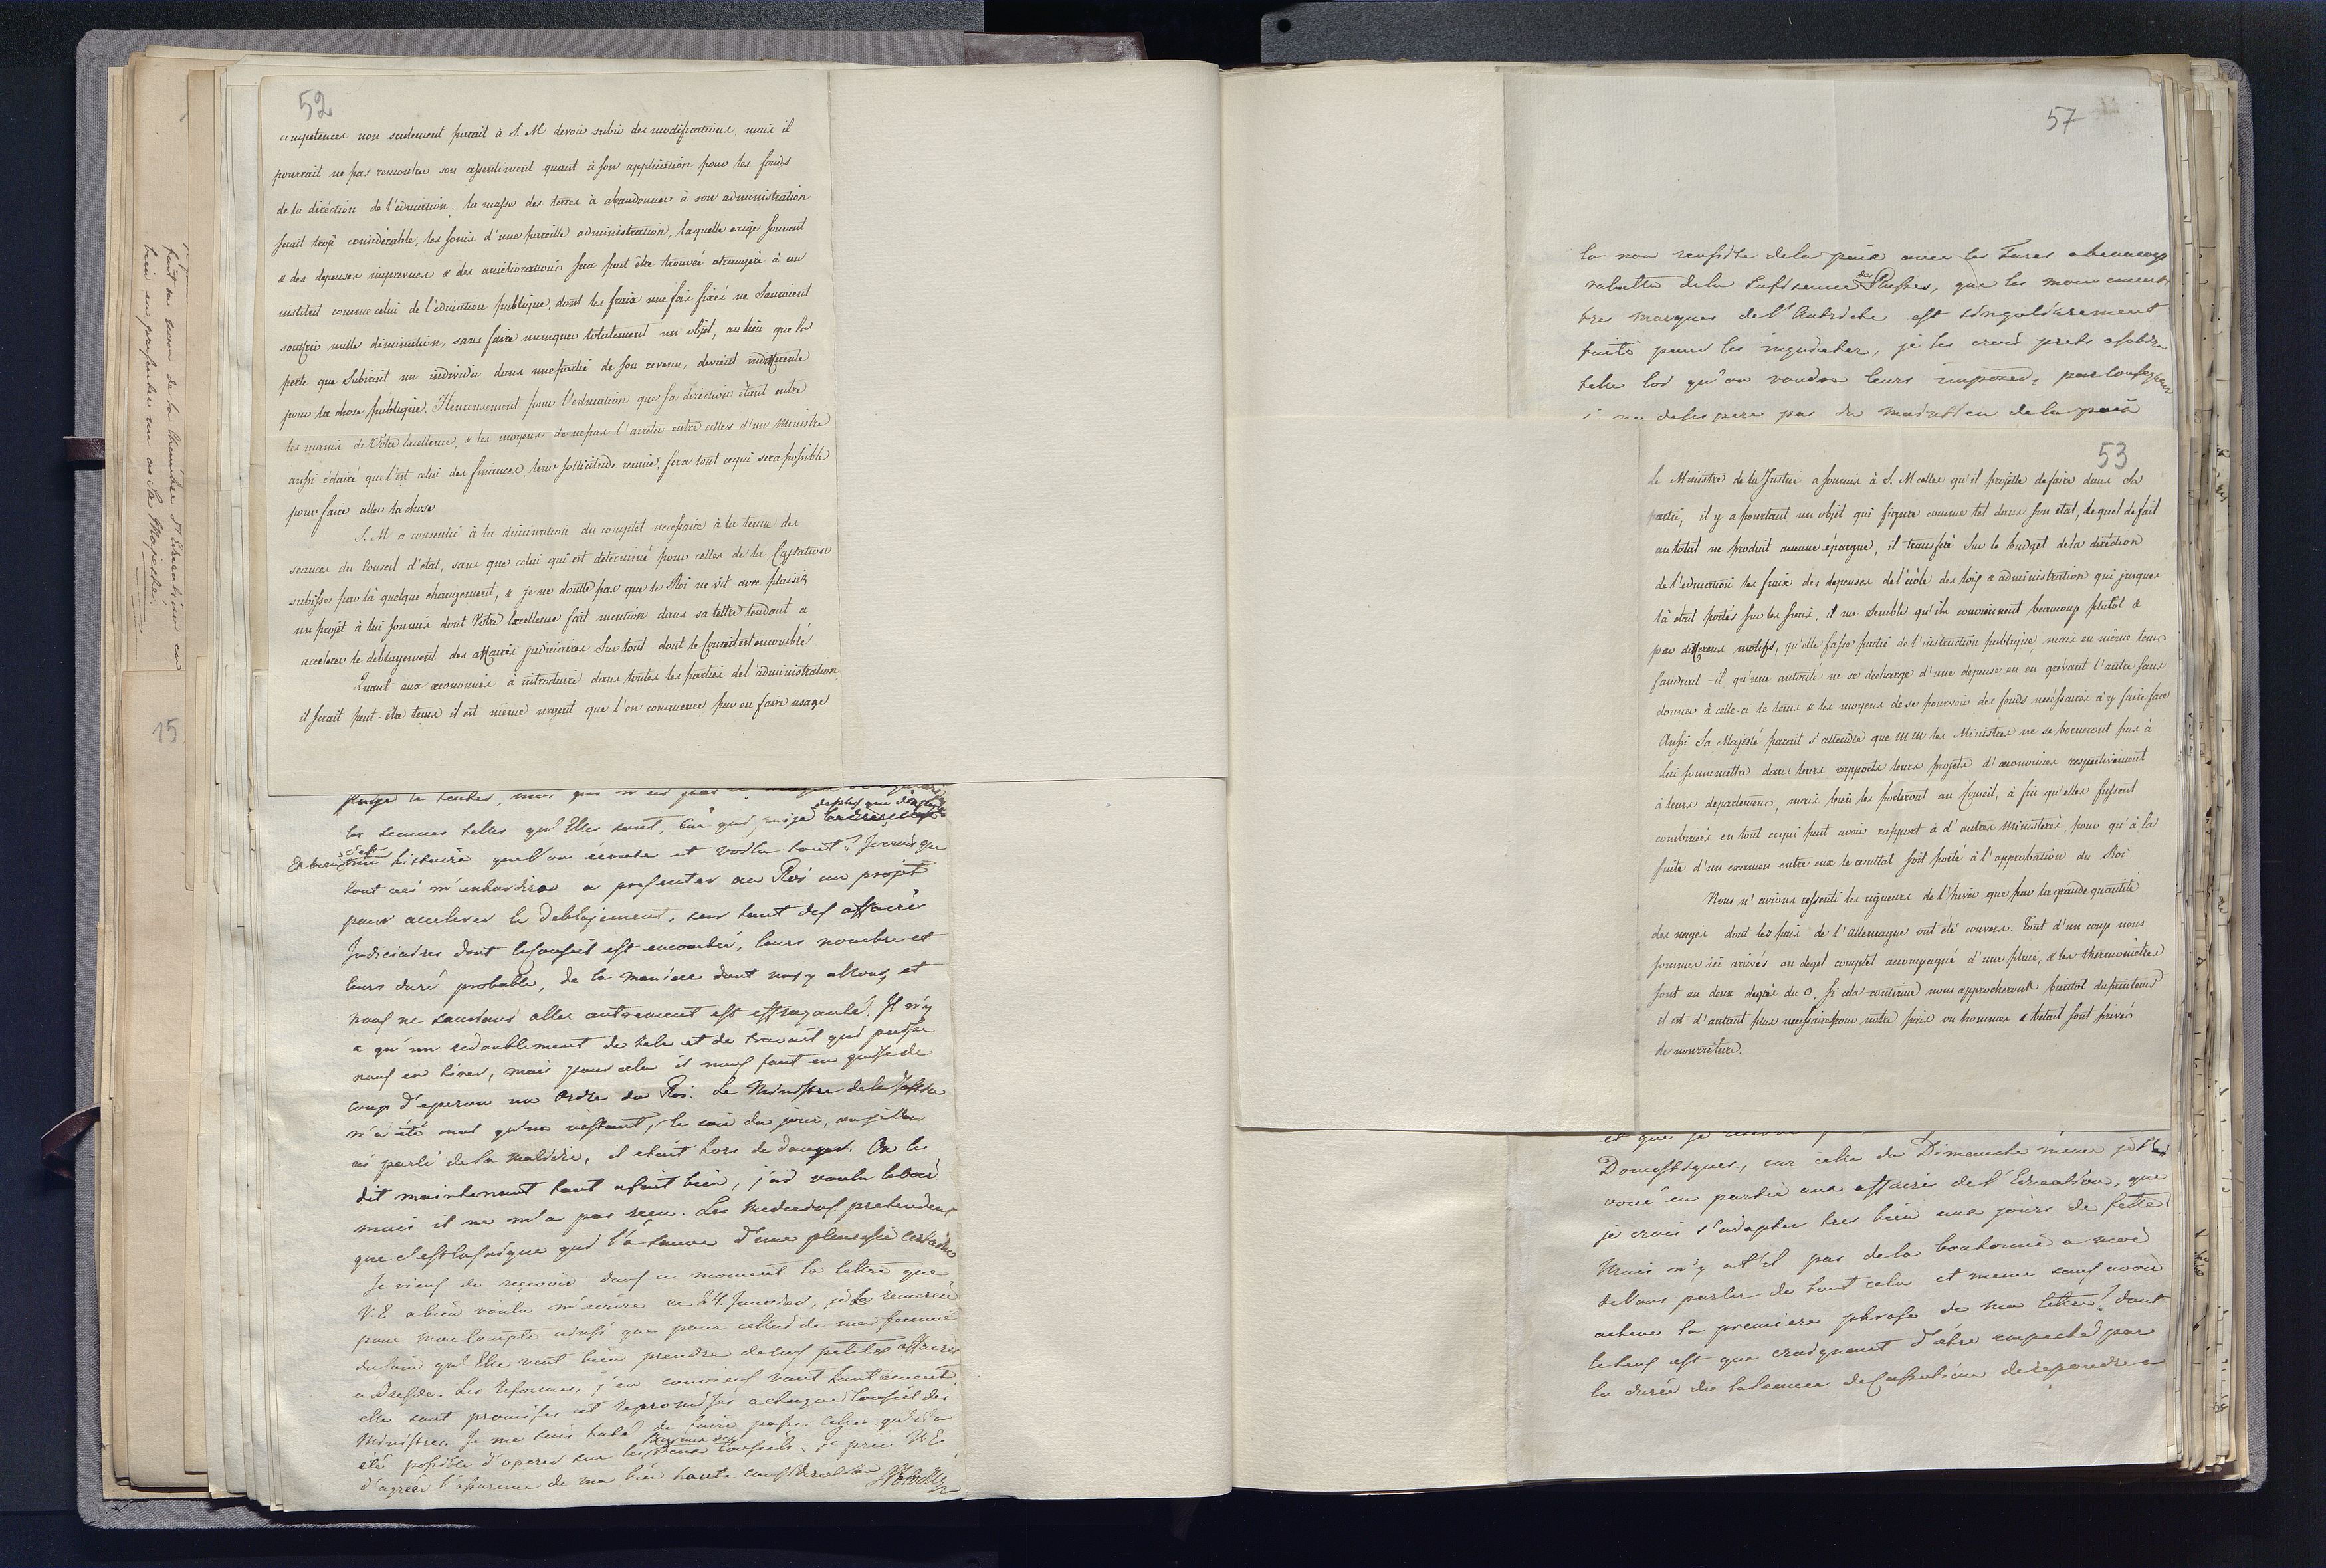 52
competences non seulement parait à S. M devoir subir des modifications, mais il
pourrait ne pas rencontrer son assentiment quant à son application pour les fonds
de la diréction de l'education. la masse des terres à abandonner à son administration
serait trop considèrable, les soins d'une pareille administration, laquelle exige souvent
& des depenses imprevues & des améliorations sera peut être trouvée etrangère à un
institut comme celui de l'education publique, dont les fraix une fois fixés ne sauraient
souffrir nulle diminution, sans faire manquer totalement un objet, au lieu que la
perte que Subirait un individu dans une partie de son revenu, devient indifferente
pour la chose publique. Heureusement pour l'education que sa direction étant entre
les mains de Votre Excellence, & les moyens de ne pas l'arreter entre celles d'un Ministre
aussi éclairé que l'est celui des finances, leur sollicitude reunie, fera tout ce qui sera possible
pour faire aller la chose
S. M a consentie à la diminution du complet necessaire à la tenue des
seances du Conseil d'etat, sans que celui qui est déterminé pour celles de la Cassation
subisse par là quelque changement, & je ne doutte pas que le Roi ne vit avec plaisir
un projèt à lui soumis dont Votre Excellence fait mention dans sa lettre tendant a
accelerer le deblayement des affaires judiciaires Sur tout dont le Conseil est encombré
Quant aux œconomies à introduire dans toutes les parties de l'administration,
il serait peut-être tems il est même urgent que l'on commence par en faire usage
les sceances telles qu'Elles sont, car que puisje
Eh bien c'est histoire que l'on écoute et voila tout? Je crois que
tout ceci m'enhardira a presenter au Roi un projet
pour accelerer le deblajement, sur tout des affaires
Judiciaires dont le Conseil est encombré, leurs nombre et
leurs duré probable, de la maniere dont nous y allons, et
nous ne saurions aller autrement est effrayante. Il n'y
a qu'un redoublement de zele et de travail qui puisse
nous en tirer, mais pour cela il nous faut en guise de
coup d'eperon un Ordre du Roi. Le Ministre de la Justice
n'a été mal qu'un instant, le soir du jour, ou je Vous
ai parlé de la maladie, il etait hors de danger. On le
dit maintenant tout a fait bien, j'ai voulu le voir
mais il ne m'a pas reçu. Les Medecins pretendent
que c'est la saignée qui l'a sauvé d'une pleuresie certaine
Je viens de reçevoir dans ce moment la lettre que
V. E a bien voulu m'ecrire ce 24. Janvier, je La remercie
pour mon Compte ainsi que pour celui de ma femme
du soin qu'Elle veut bien prendre de nos petites affaires
a Dresde. Les reformes, j'en conviens vont lentement,
elle sont promises et repromises a chaque Conseil des
Ministres. Je me suis haté de faire passer celles qu'il a
été possible d'operer sur les deux Conseils. Je prie V. E
d'agréer l'assurance de ma bien haute consideration
faut en sera de la Chambre d'Education en
bien en presenter un au Sa Majeste.
15
57
la non reussite de la paix avec les Turcs a beaucoup
rabattu de la suffisance des Russes, que les mouvements
tres marqués de l'Autriche est singulièrement
faite pour les inquieter, je les crois prets a subir
telle loi qu'on voudra leurs imposer, par consequent
ne desespere pas du maintien de la paix
53
Le Ministre de la Justice a soumis à S. M celles qu'il projette de faire dans Sa
partie, il y a pourtant un objèt qui figure comme tel dans son etat, lequel de fait
au total ne produit aucune épargne, il transferé Sur le budget de la direction
de l'education les fraix des depenses de l'école des loix & administration qui jusques
là etait portés sur les siens, il me Semble qu'ils conviennent beaucoup plutôt &
par differens motifs, qu'elle fasse partie de l'instruction publique, mais en même tems
faudrait-il qu'une autorité ne se decharge d'une depense en en grévant l'autre sans
donner à celle-ci le tems & les moyens de se pourvoir des fonds necéssaires à y faire face
Aussi Sa Majesté parait s'attendre que MM les Ministres ne se borneront pas à
Lui soummettre dans leurs rapports leurs projèts d'œconomies respectivement
à leurs departemens, mais bien les porteront au Conseil, à fin qu'elles fussent
combinées en tout ce qui peut avoir rapport à d'autres Ministeres, pour qu'à la
suite d'un examen entre eux le resultat soit porté à l'approbation du Roi.
Nous n'avions ressenti les rigueurs de l'hiver que par la grande quantité
des neiges dont les païs de l'allemagne ont été couvers. Tout d'un coup nous
sommes ici arrivés au degel complèt accompagné d'une pluie, & les thermomètres
sont au deux degrés du 0. Si cela continue nous approcherons bientôt du printems
il est d'autant plus necessaire pour notre païs ou hommes & bétail sont privés
de nourriture.
et que je
Domestiques, car celle du Dimanche même je l'ai
voué en partie aux affaires de l'Education, que
je crois s'adapter tres bien aux jours de fette.
Mais n'y at'il pas de la bonhomie a moi
de Vous parler de tout cela et meme sans avoir
acheve la premiere phrase de ma lettre! dont
le sens est que craignant d'étre empeché par
la durée de la seance de Cassation de repondre a